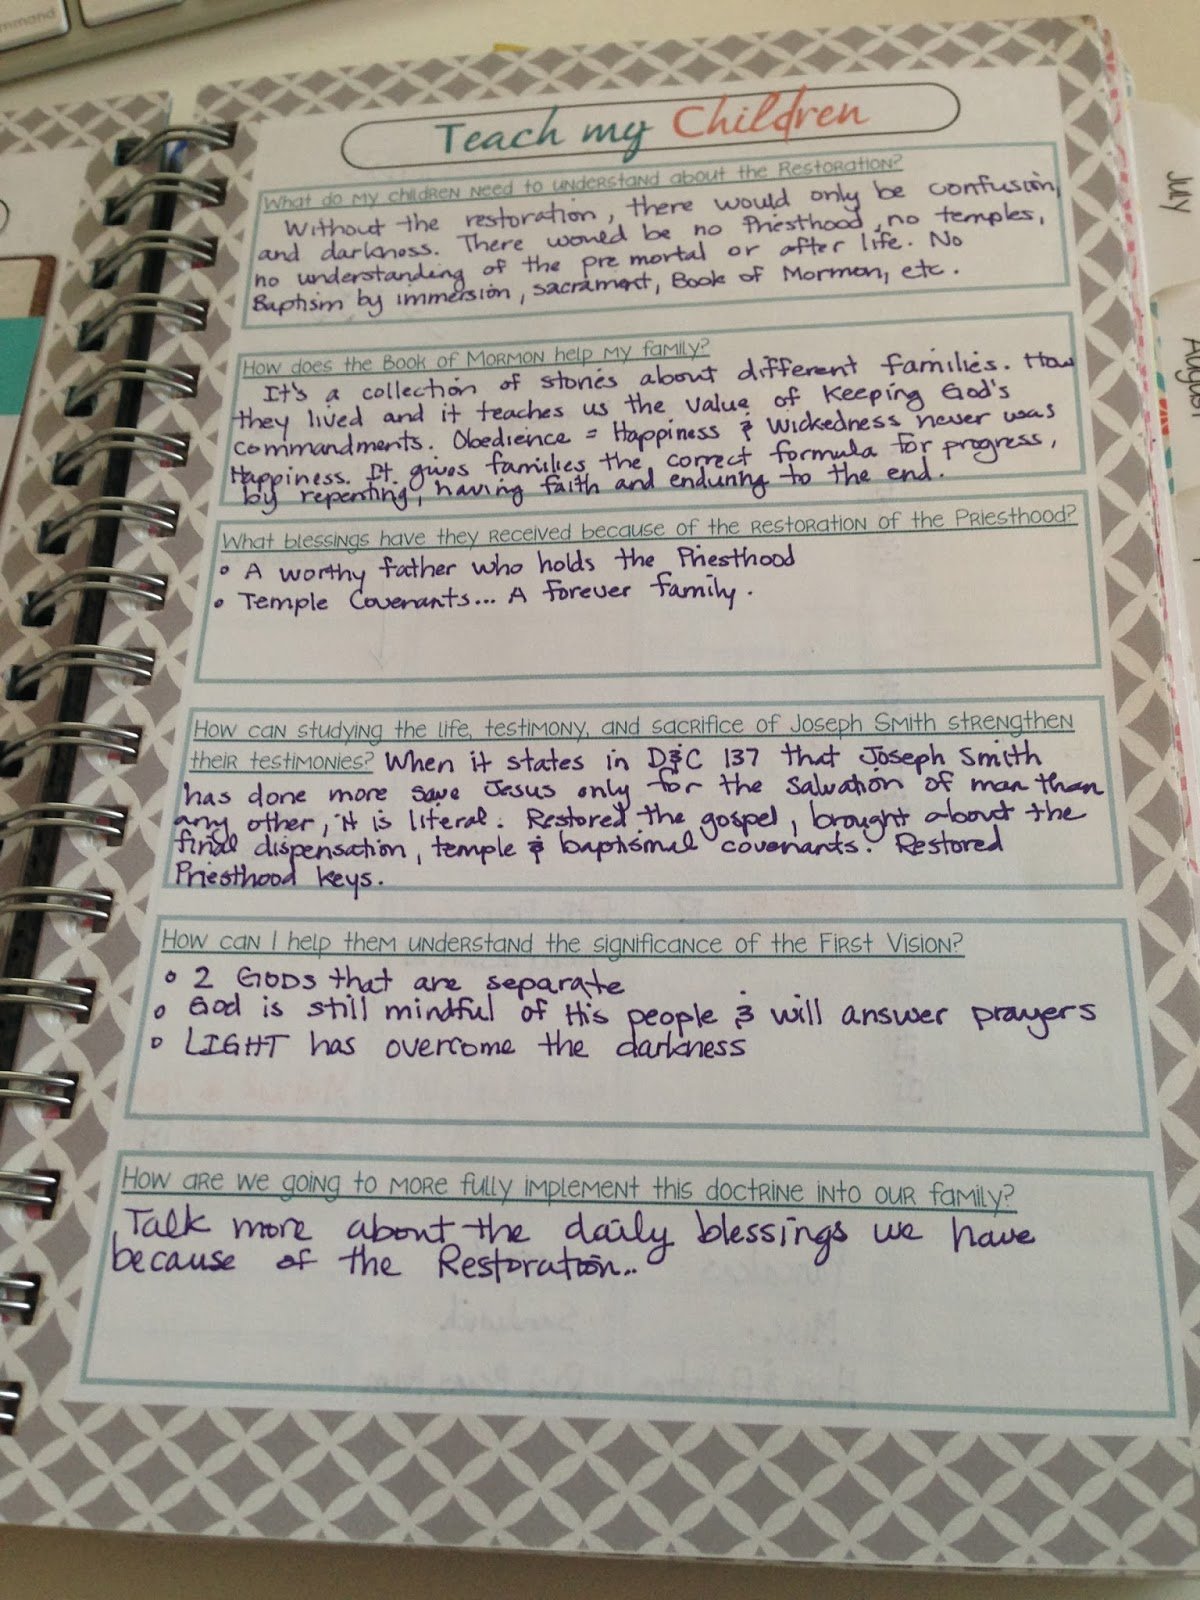 mmand
Teach my Children
July
August
What do my children need to understand about the Restoration?
Without the restoration, there would only be confusion,
and darkness. There would be no Priesthood, no temples,
no understanding of the pre mortal or after life. No
Baptism by immersion, sacrament, Book of Mormon, etc.
How does the Book of Mormon help my family?
It's a collection of stories about different families. How
they lived and it teaches us the value of keeping God's
commandments. Obedience = Happiness & wickedness never was
Happiness. It gives families the correct formula for progress,
by repenting, having faith and enduring to the end.
What blessings have they received because of the restoration of the Priesthood?
• A worthy father who holds the Priesthood
• Temple Covenants... A forever family.
How can studying the life, testimony, and sacrifice of Joseph Smith strengthen
their testimonies? When it states in D&C 137 that Joseph Smith
has done more save Jesus only for the salvation of man than
any other, it is literal. Restored the gospel, brought about the
final dispensation, temple & baptismal covenants. Restored
Priesthood keys.
How can I help them understand the significance of the First Vision?
• 2 GODS that are separate
• God is still mindful of His people & will answer prayers
• LIGHT has overcome the darkness
How are we going to more fully implement this doctrine into our family?
Talk more about the daily blessings we have
because of the Restoration..